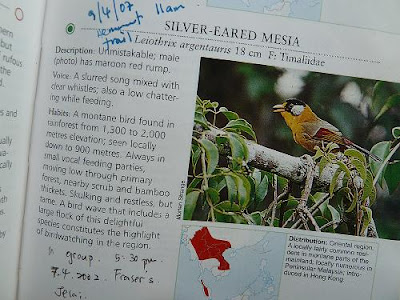 9/4/07 11am
SILVER-EARED MESIA
Leiothrix argentauris 18 cm F: Timaliidae
Description: Unmistakable; male
(photo) has maroon red rump.
Voice: A slurred song mixed with
clear whistles; also a low chatter-
ing while feeding.
Habits: A montane bird found in
rainforest from 1,300 to 2,000
metres elevation; seen locally
down to 900 metres. Always in
small vocal feeding parties,
moving low through primary
forest, nearby scrub and bamboo
thickets. Skulking and restless, but
tame. A bird wave that includes a
large flock of this delightful
species constitutes the highlight
of birdwatching in the region.
Morten Strange
Distribution: Oriental region.
A locally fairly common resi-
dent in montane parts of the
mainland, locally numerous in
Peninsular Malaysia; intro-
duced in Hong Kong.
In group. 5:30 pm
7.4.2002 Fraser's